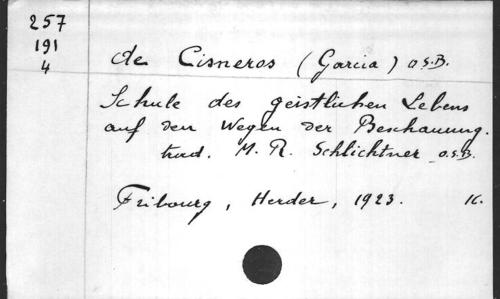 257
191
4
de Cisneros (Garcia) O.S.B.
Schule des geistlichen Lebens
auf den Wegen der Beschauung.
trad. M. R. Schlichtner O.S.B.
Fribourg, Herder, 1923. 16.